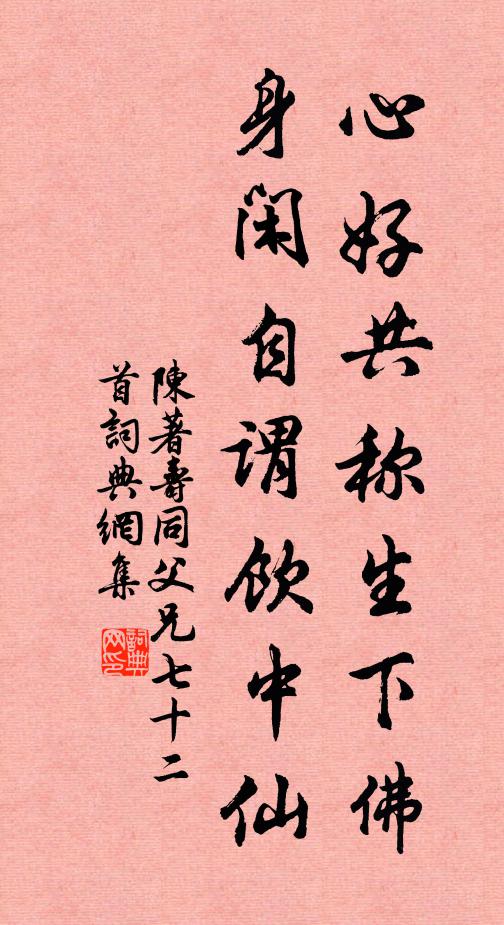 心好共称生下佛
身闲自谓饮中仙
陳著壽同父兄七十二
首詞典網集
詞典
网印